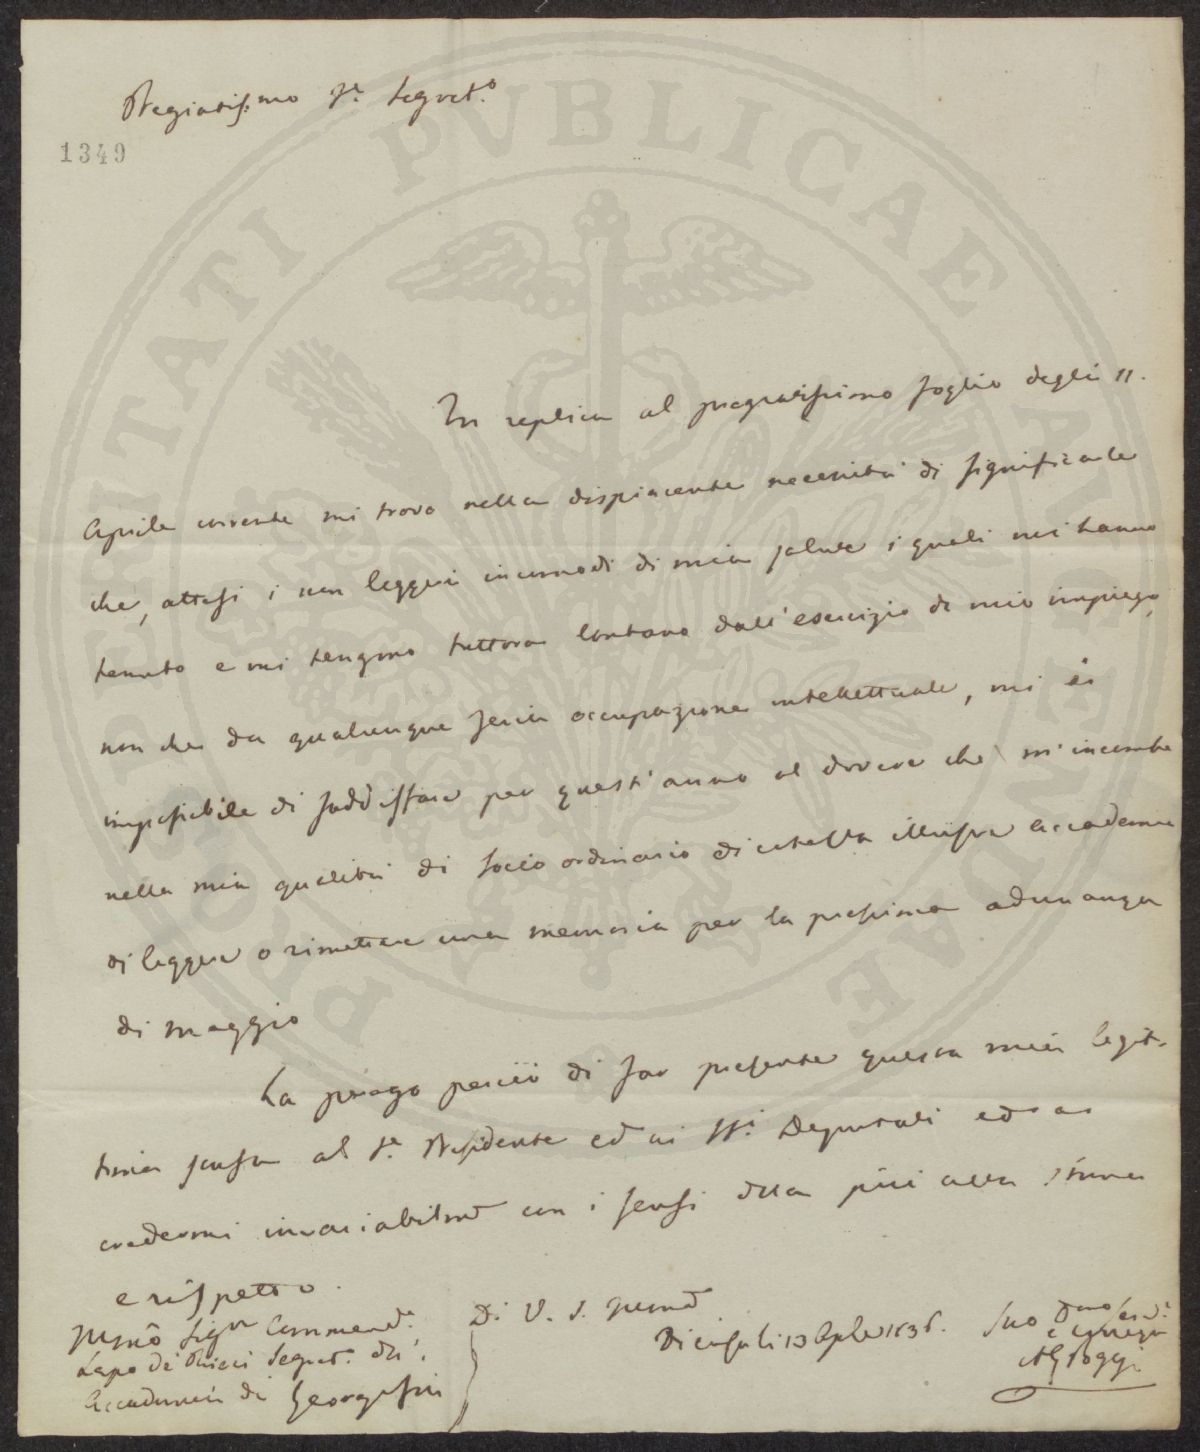 Pregiatis.mo Sr. Segret.o
1349
PROSPERITATI PUBLICAE AUGENDAE
In replica al pregiatissimo foglio degli 11.
Aprile corrente mi trovo nella dispiacente necessità di significarle
che, attesi i non leggeri incomodi di mia salute i quali mi hanno
tenuto e mi tengono tuttora lontano dall'esercizio di mio impiego,
non che da qualunque seria occupazione intellettuale, mi è
impossibile di soddisfare per quest'anno al dovere che m'incombe
nella mia qualità di socio ordinario di cotesta illustre accademia
di leggere o rimettere una memoria per la prossima adunanza
di Maggio
La prego perciò di far presente questa mia legit-
tima scusa al Sr. Presidente ed ai SS.i Deputati ed a
credermi invariabilm.e con i sensi della più alta stima
e rispetto.
Di V. S. Illma
Di casa li 13 Aple 1836.
Suo
G Poggi
Sigr Commend.e
Lapo de Ricci Segret.
Accademia di Georgofili